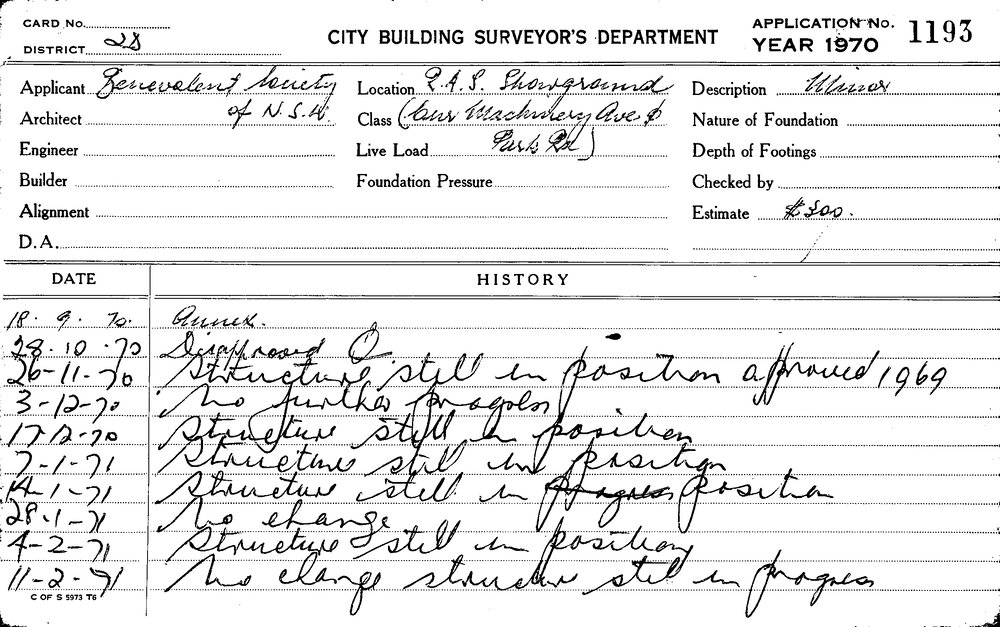 CARD No.
DISTRICT 28
CITY BUILDING SURVEYOR'S DEPARTMENT
APPLICATION No. 1193
YEAR 1970
Applicant Benevolent Society
of N.S.W.
Location R.A.S. Showground
(Cnr Machinery Ave &
Park Rd)
Description Minor
Architect
Class
Nature of Foundation
Engineer
Live Load
Depth of Footings
Builder
Foundation Pressure
Checked by
Alignment
Estimate $300.
D.A.
DATE HISTORY
18. 9. 70. Annex.
28.10.70 Disapproved
26-11-70 Structure still in position approved 1969
3-12-70 No further progress
17-12-70 Structure still in position
7-1-71 Structure still in position
14-1-71 Structure still in progress position
28.1-71 No change
4-2-71 Structure still in position
11-2-71 No change structure still in progress
C OF S 5973 T6